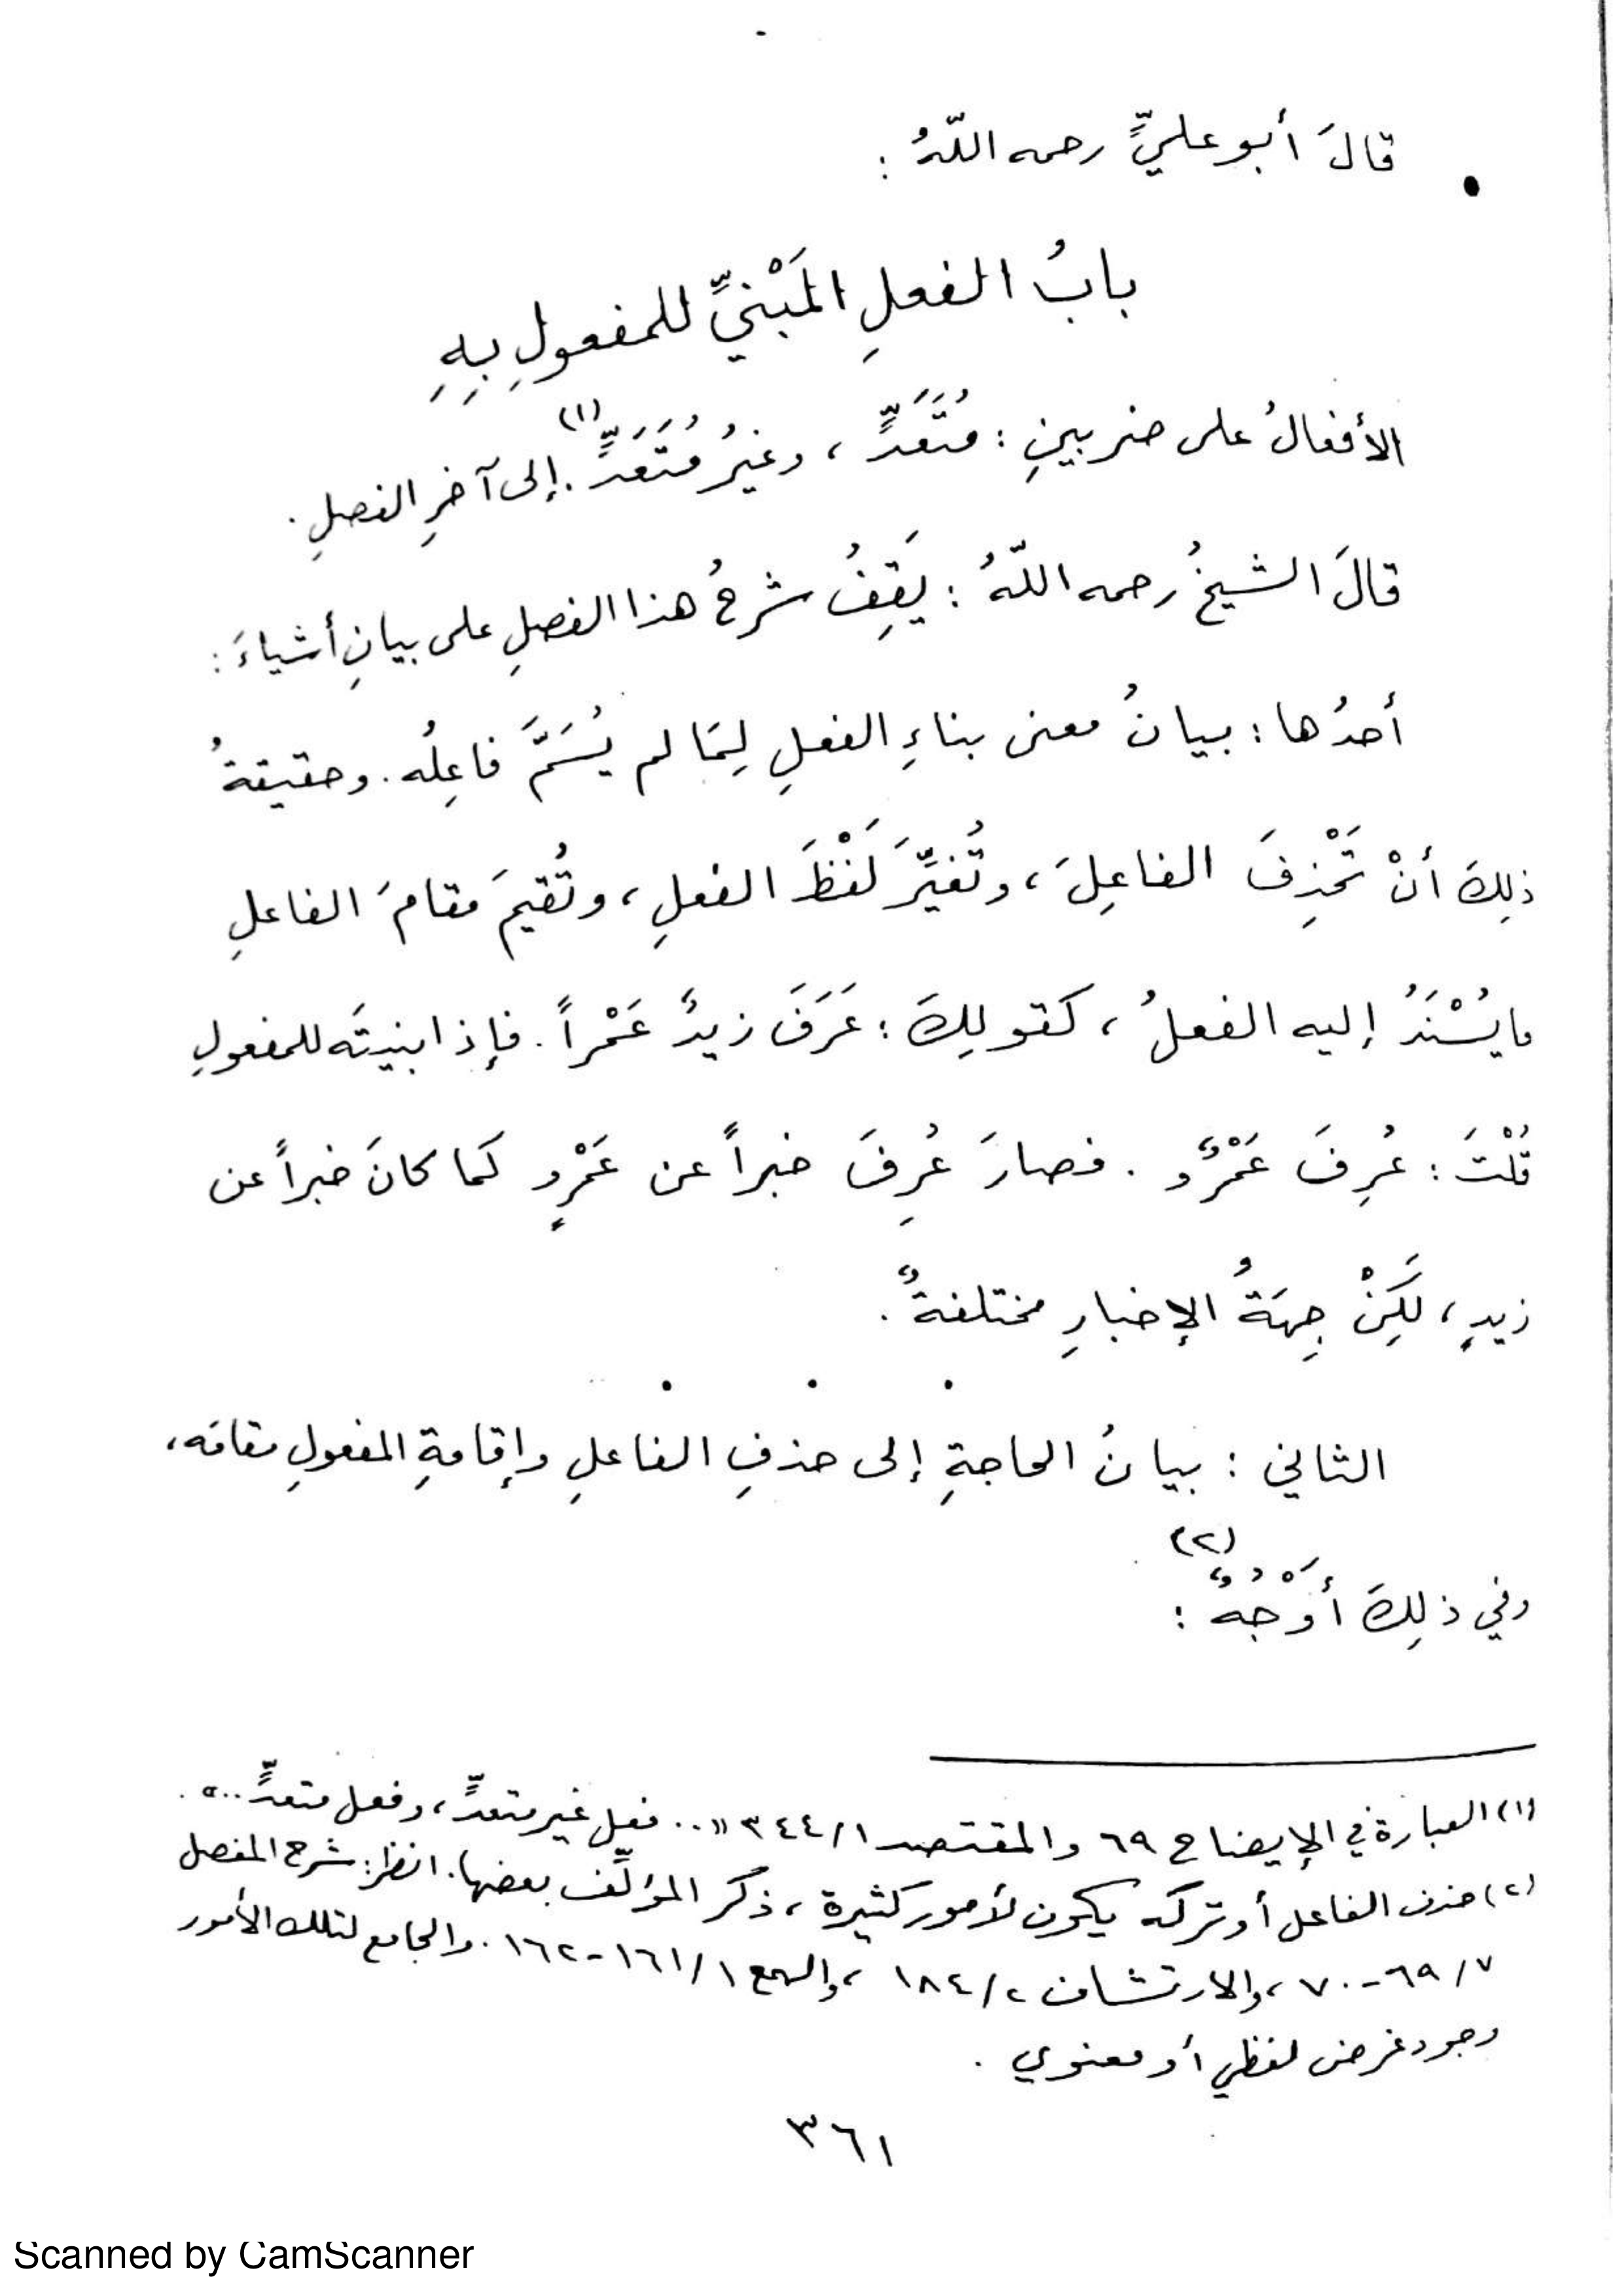 قالَ أبو عليٍّ رحمه اللّهُ :
بابُ الفعلِ المَبْنيِّ للمفعولِ بِهِ
الأفعالُ على ضربينِ : مُتَعَدٍّ ، وغيرُ مُتَعَدٍّ (١) . إلى آخرِ الفصلِ .
قالَ الشيخُ رحمه اللّهُ : يَقِفُ شرحُ هذا الفصلِ على بيانِ أشياءَ :
أحدُها : بيانُ معنى بناءِ الفعلِ لِمَا لم يُسَمَّ فاعِلُه . وحقيقةُ
ذلِكَ أنْ تَحْذِفَ الفاعِلَ ، وتُغيِّرَ لَفْظَ الفعلِ ، وتُقيمَ مقامَ الفاعلِ
ما يُسْنَدُ إليه الفعلُ ، كقولِكَ : عَرَفَ زيدٌ عَمْراً . فإذا بنيتَه للمفعولِ
قُلْتَ : عُرِفَ عَمْرٌو . فصارَ عُرِفَ خبراً عن عَمْرٍو كَما كانَ خبراً عن
زيدٍ ، لَكِنْ جِهَةُ الإخبارِ مختلفةٌ .
الثاني : بيانُ الحاجةِ إلى حذفِ الفاعلِ وإقامةِ المفعولِ مقامَه ،
وفي ذلِكَ أَوْجُهٌ (٢) :
(١) العبارة في الإيضاح ٦٩ والمقتصد ٣٤٤/١ «.. فعل غير متعدٍّ ، وفعل متعدٍّ ...» .
(٢) حذف الفاعل أو تركه يكون لأمور كثيرة ، ذكر المؤلِّف بعضها . انظر : شرح المفصل
٦٩/٧-٧٠ ، والارتشاف ١٨٤/٢ ، والهمع ١٦١/١-١٦٢ . والجامع لتلك الأمور
وجود غرض لفظي أو معنوي .
٣٦١
Scanned by CamScanner